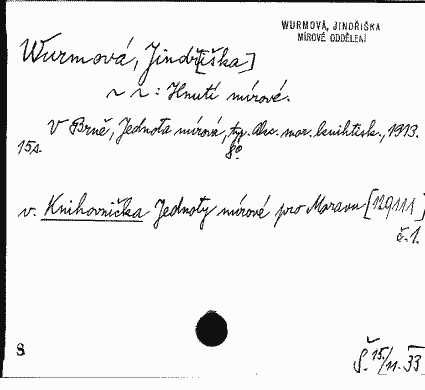 WURMOVÁ, JINDŘIŠKA
MÍROVÉ ODDĚLENÍ
Wurmová, Jindř[iška]
~ ~ : Hnutí mírové.
V Brně, Jednota mírová, typ. Akc. mor. knihtisk., 1913.
15 s. 8°
v. Knihovnička Jednoty mírové pro Moravu [129111]
č. 1.
8
Š. 15/11. 33